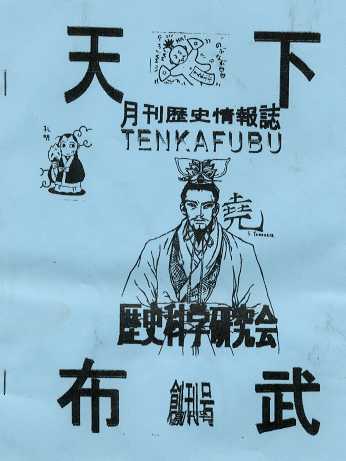 天下
月刊歴史情報誌
TENKAFUBU
堯
歴史科学研究会
布武
創刊号